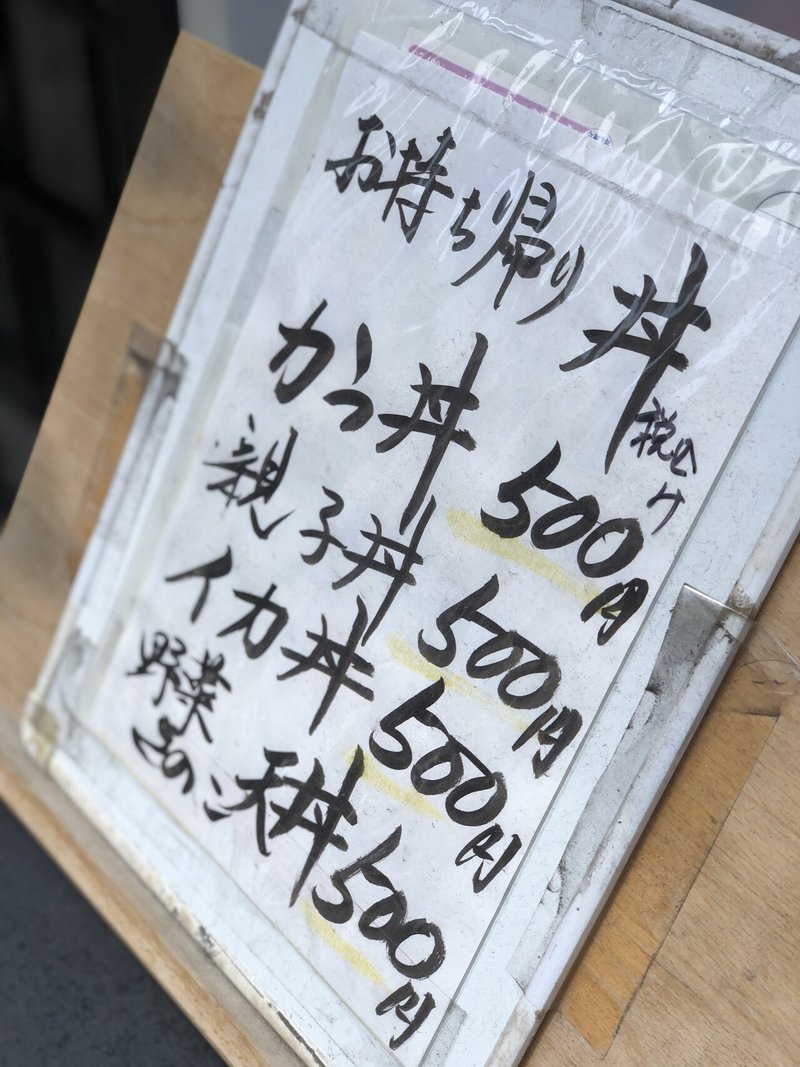 お持ち帰り丼
税込
かつ丼 500円
親子丼 500円
イカ丼 500円
野菜
きのこ天丼 500円